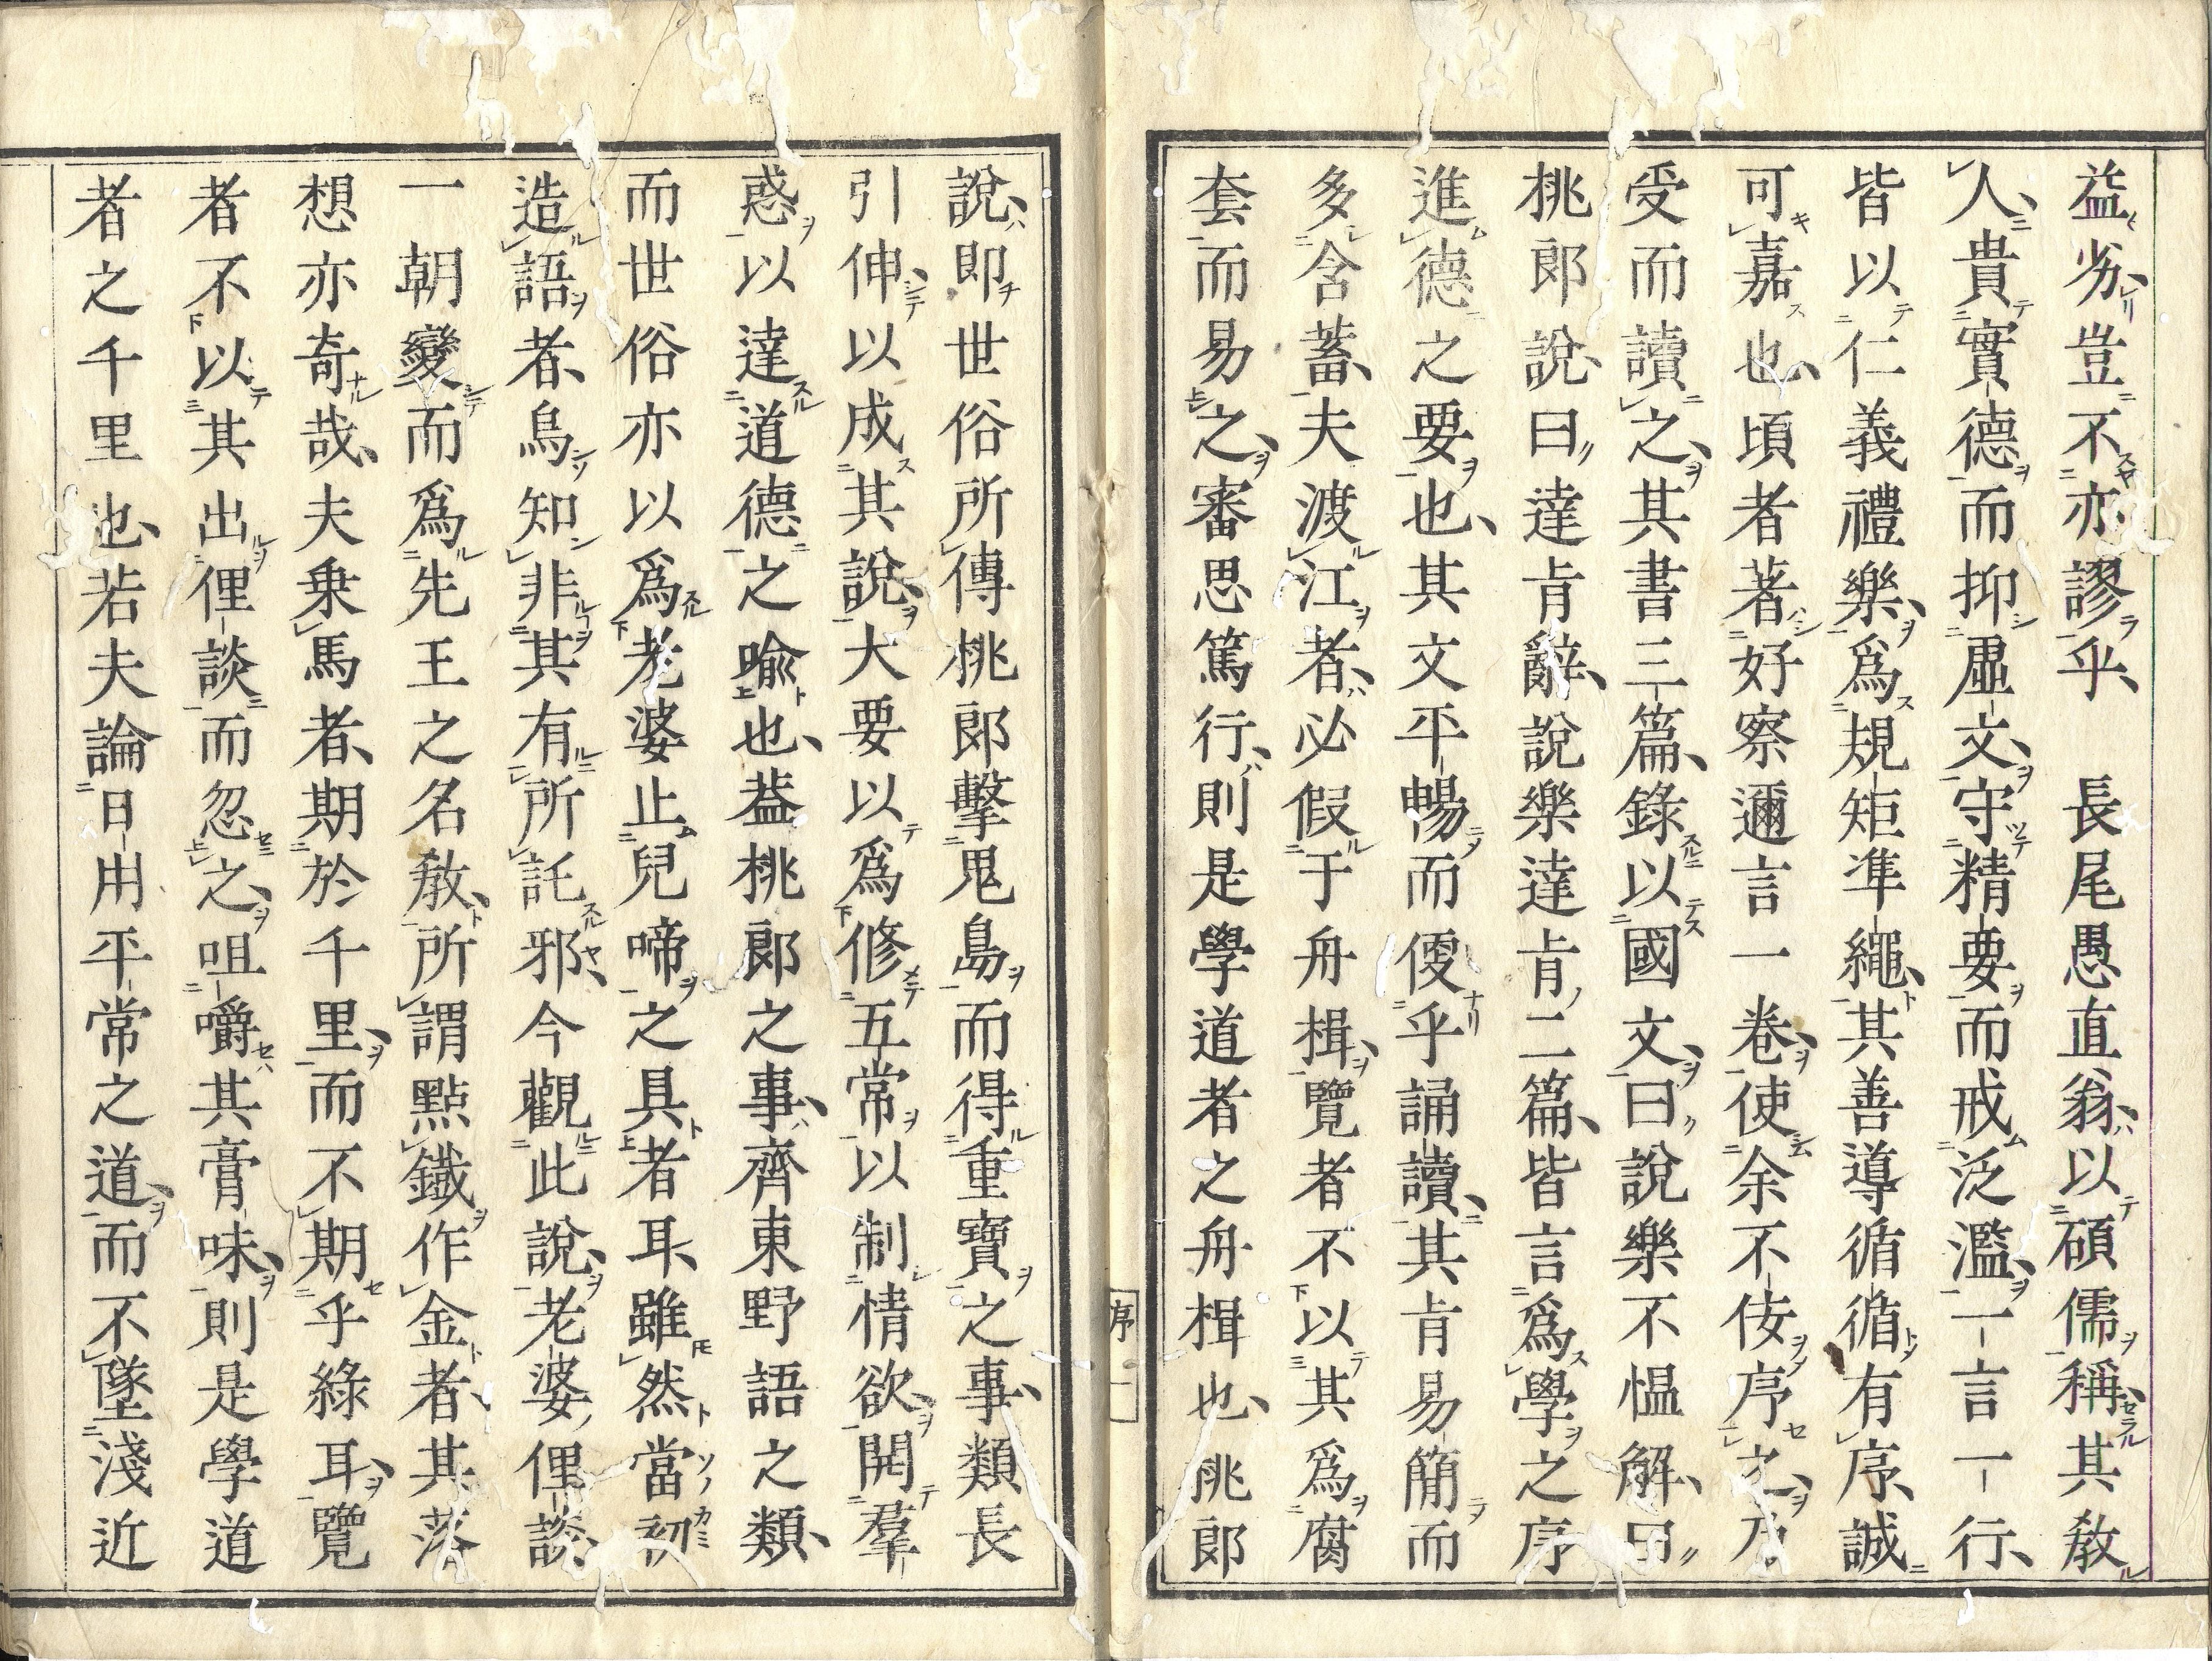 益劣豈不亦謬乎長尾愚直翁以碩儒稱其教
人貴實德而抑虛文守精要而戒泛濫一言一行
皆以仁義禮樂爲規矩準繩其善導循循有序誠
可嘉也頃者著好察邇言一卷使余不佞序之乃
受而讀之其書三篇錄以國文曰說樂不慍解曰
桃郎說曰達肯辭說樂達肯二篇皆言爲學之序
進德之要也其文平暢而優乎誦讀其肯易簡而
多含蓄夫渡江者必假于舟楫覽者不以其爲腐
套而易之審思篤行則是學道者之舟楫也桃郎
序一
說卽世俗所傳桃郎擊鬼島而得重寶之事類長
引伸以成其說大要以爲修五常以制情欲開羣
惑以達道德之喻也葢桃郎之事齊東野語之類
而世俗亦以爲老婆止兒啼之具者耳雖然當初
造語者烏知非其有所託邪今觀此說老婆俚談
一朝變而爲先王之名教所謂點鐵作金者其落
想亦奇哉夫乗馬者期於千里而不期乎綠耳覽
者不以其出俚談而忽之咀嚼其膏味則是學道
者之千里也若夫論日用平常之道而不墜淺近